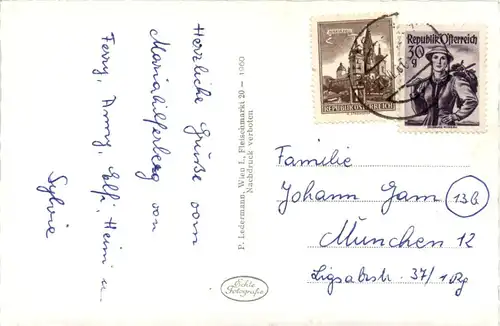 Herzliche Grüße vom
Mariahilferberg von
Ferry, Anny, Elfi, Heini u.
Sylvia
P. Ledermann Wien I., Fleischmarkt 20 — 1960
Nachdruck verboten
Echte
Fotografie
REPUBLIK ÖSTERREICH
Republik Österreich
30
g
Familie
Johann Gam 13B
München 12
37/1 Rg